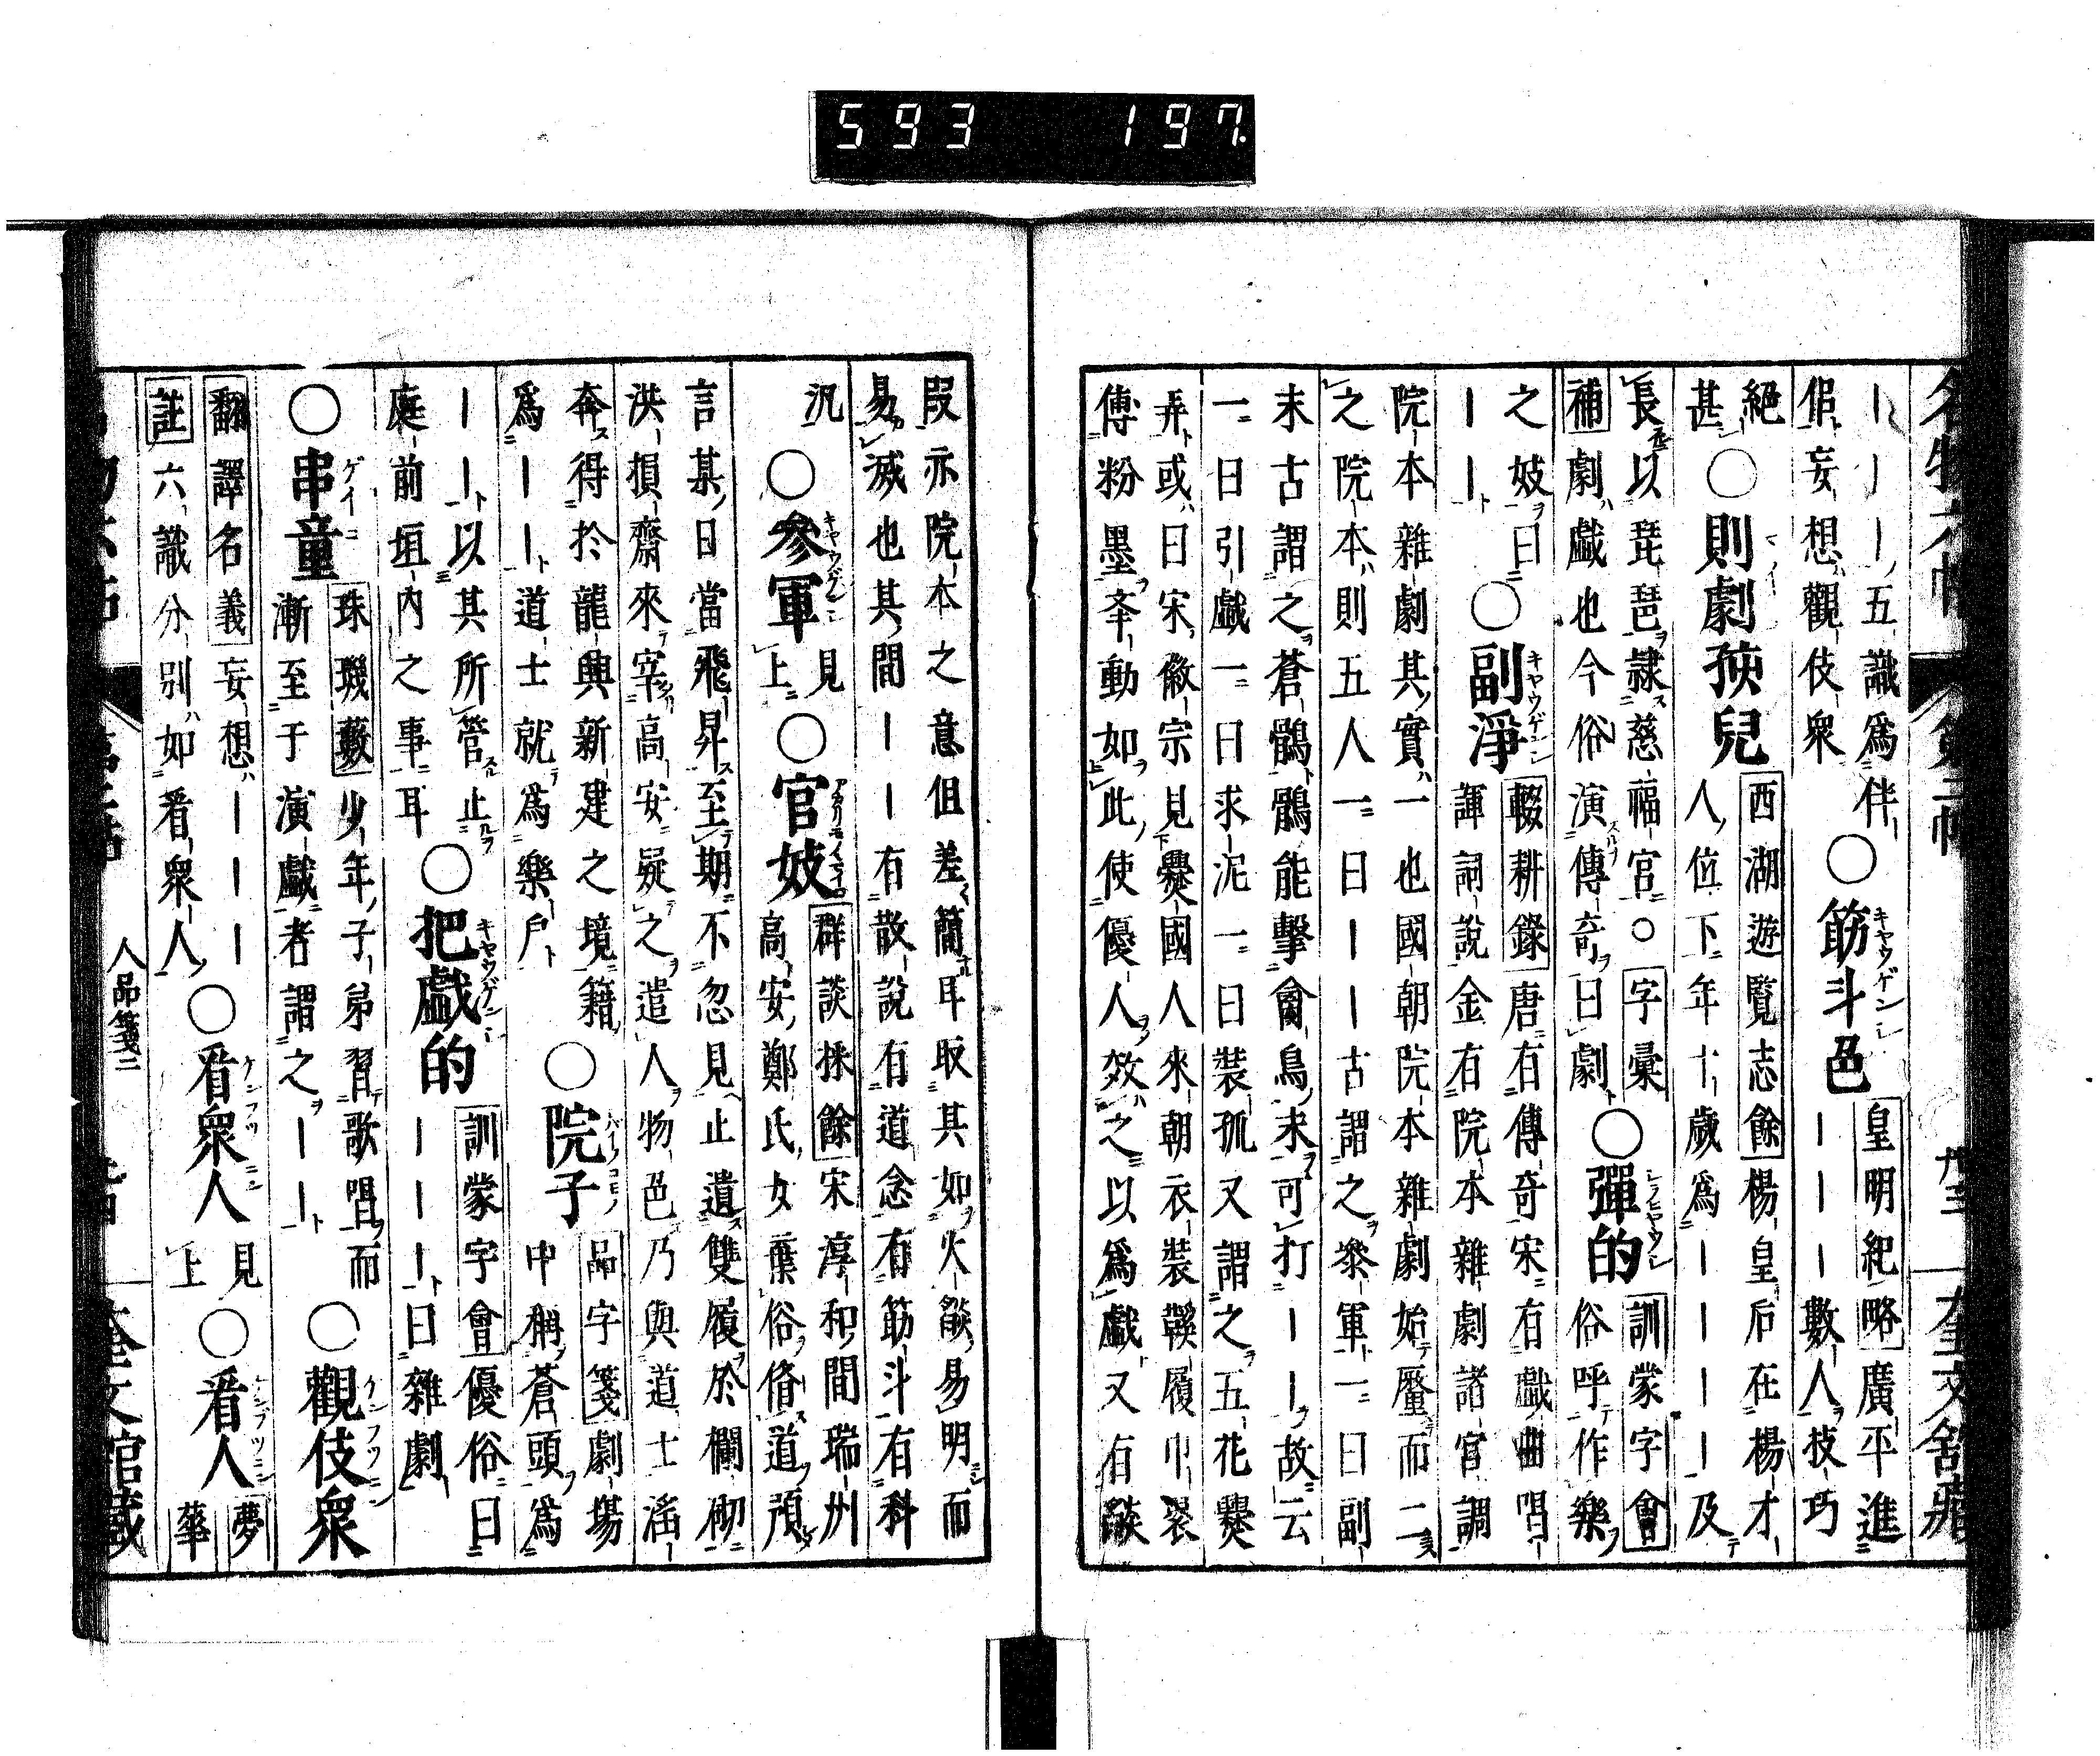 593 197
丨丨丨五識爲伴
侶妄想觀伎衆
○筋斗色
皇明紀略廣平進
丨丨丨數人技巧
絕
甚
○則劇孩兒
西湖遊覧志餘楊皇后在楊才
人位下年十歲爲丨丨丨丨及
長以琵琶隷慈福宮○字彙
補劇戲也今俗演傳奇曰劇
○彈的
訓蒙字會
俗呼作樂
之妓曰
丨丨
○副淨
輟耕錄唐有傳奇宋有戲曲唱
諢詞說金有院本雜劇諸宮調
院本雜劇其實一也國朝院本雜劇始釐而二
之院本則五人一曰丨丨古謂之參軍一曰副
末古謂之蒼鶻鶻能擊禽鳥末可打丨丨故云
一曰引戲一曰求泥一曰裝孤又謂之五花爨
弄或曰宋徽宗見爨國人來朝衣裝鞵履巾裹
傅粉墨夆動如此使優人效之以爲戲又有燄
段亦院本之意但差簡耳取其如火燄易明而
易滅也其間丨丨有散說有道念有筋斗有科
汎
○參軍
見
上
○官妓
群談採餘宋淳和間瑞州
高安鄭氏女葉俗脩道預
言某日當飛昇至期不忽見止遺雙履於欄砌
洪損齋來宰高安疑之遣人物色乃與道士滛
奔得於龍興新建之境籍
爲丨丨道士就爲樂戶
○院子
品字箋劇場
中稱蒼頭爲
丨丨以其所管止
庭前垣内之事耳
○把戲的
訓蒙字會優俗曰
丨丨丨曰雜劇
○串童
珠璣藪少年子弟習歌唱而
漸至于演戲者謂之丨丨
○觀伎衆
翻譯名義妄想丨丨丨
註六識分別如看衆人
○看衆人
見
上
○看人
夢
華
人品箋二